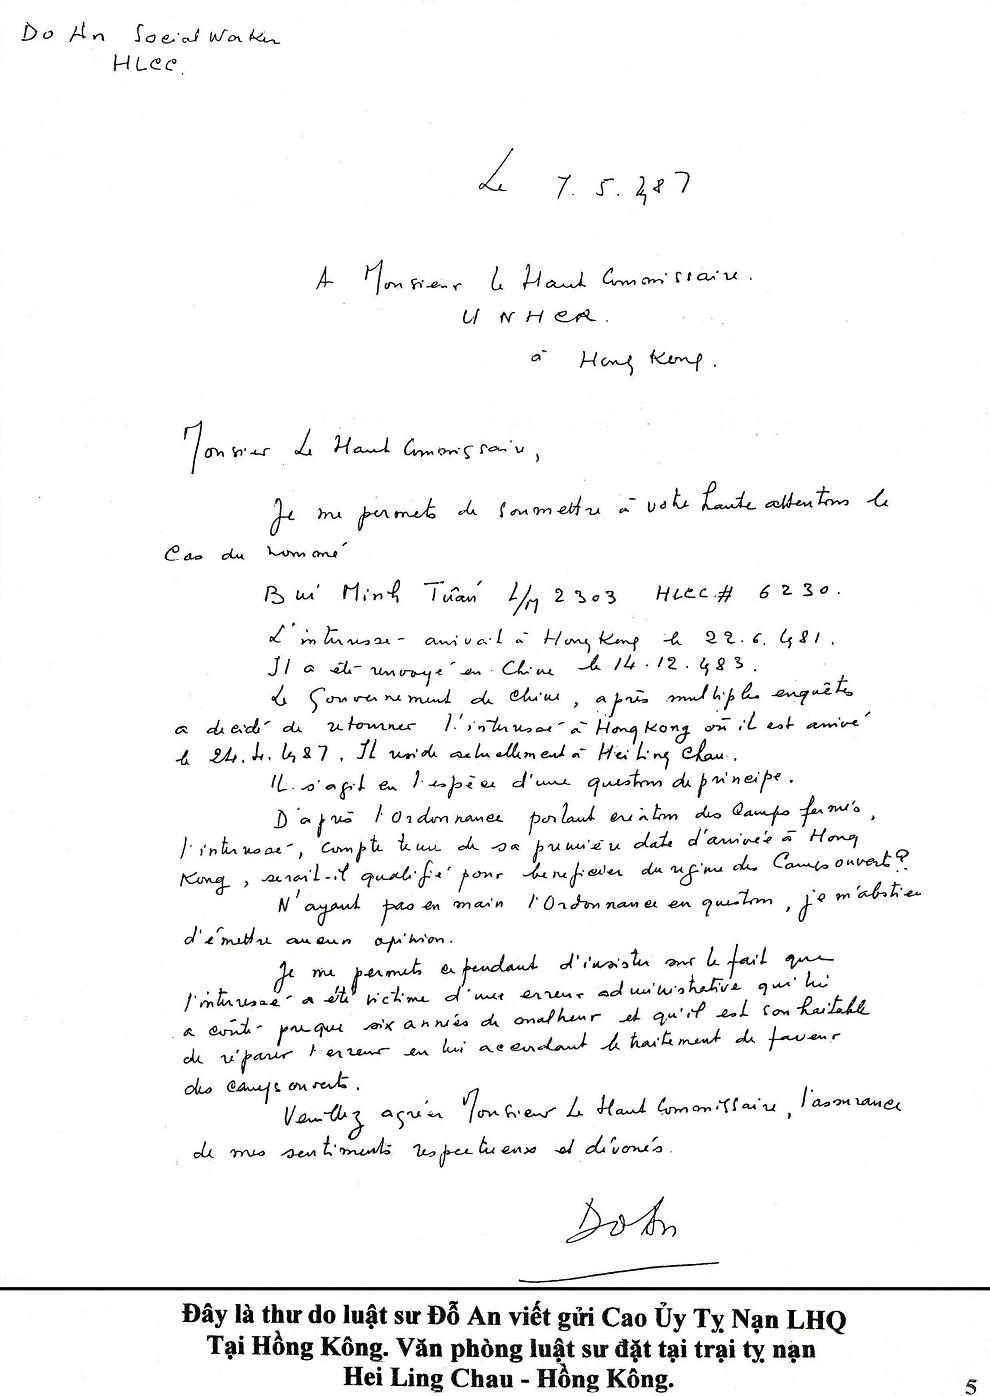 Do An Social Worker
HLCC.
Le 7.5.1987
A Monsieur le Haut Commissaire.
UNHCR.
à Hong Kong.
Monsieur Le Haut Commissaire,
Je me permets de soumettre à votre haute attention le
Cas du nommé
Bui Minh Tuấn L/M 2303 HLCC.# 6230.
L'intéressé arrivait à Hong Kong le 22.6.1981.
Il a été renvoyé en Chine le 14.12.1983.
Le Gouvernement de Chine, après multiples enquêtes
a decidé de retourner l'intéressé à Hong Kong où il est arrivé
le 24.4.1987. Il reside actuellement à Hei Ling Chau.
IL s'agit en l'espèce d'une question de principe.
D'après l'Ordonnance portant création des Camps fermés,
l'intéressé, compte tenu de sa première date d'arrivée à Hong
Kong, serait-il qualifié pour beneficier du régime des Camps ouverts?
N'ayant pas en main l'Ordonnance en question, je m'abstien
d'émettre aucun opinion.
Je me permets cependant d'insister sur le fait que
l'intéressé a été victime d'une erreur administrative qui lui
a coûté presque six années de malheur et qu'il est souhaitable
de réparer l'erreur en lui accordant le traitement de faveur
des camps ouverts.
Veuillez agréer Monsieur Le Haut Commissaire, l'assurance
de mes sentiments respectueux et dévoués.
DoAn
Đây là thư do luật sư Đỗ An viết gửi Cao Ủy Tỵ Nạn LHQ
Tại Hồng Kông. Văn phòng luật sư đặt tại trại tỵ nạn
Hei Ling Chau - Hồng Kông.
5